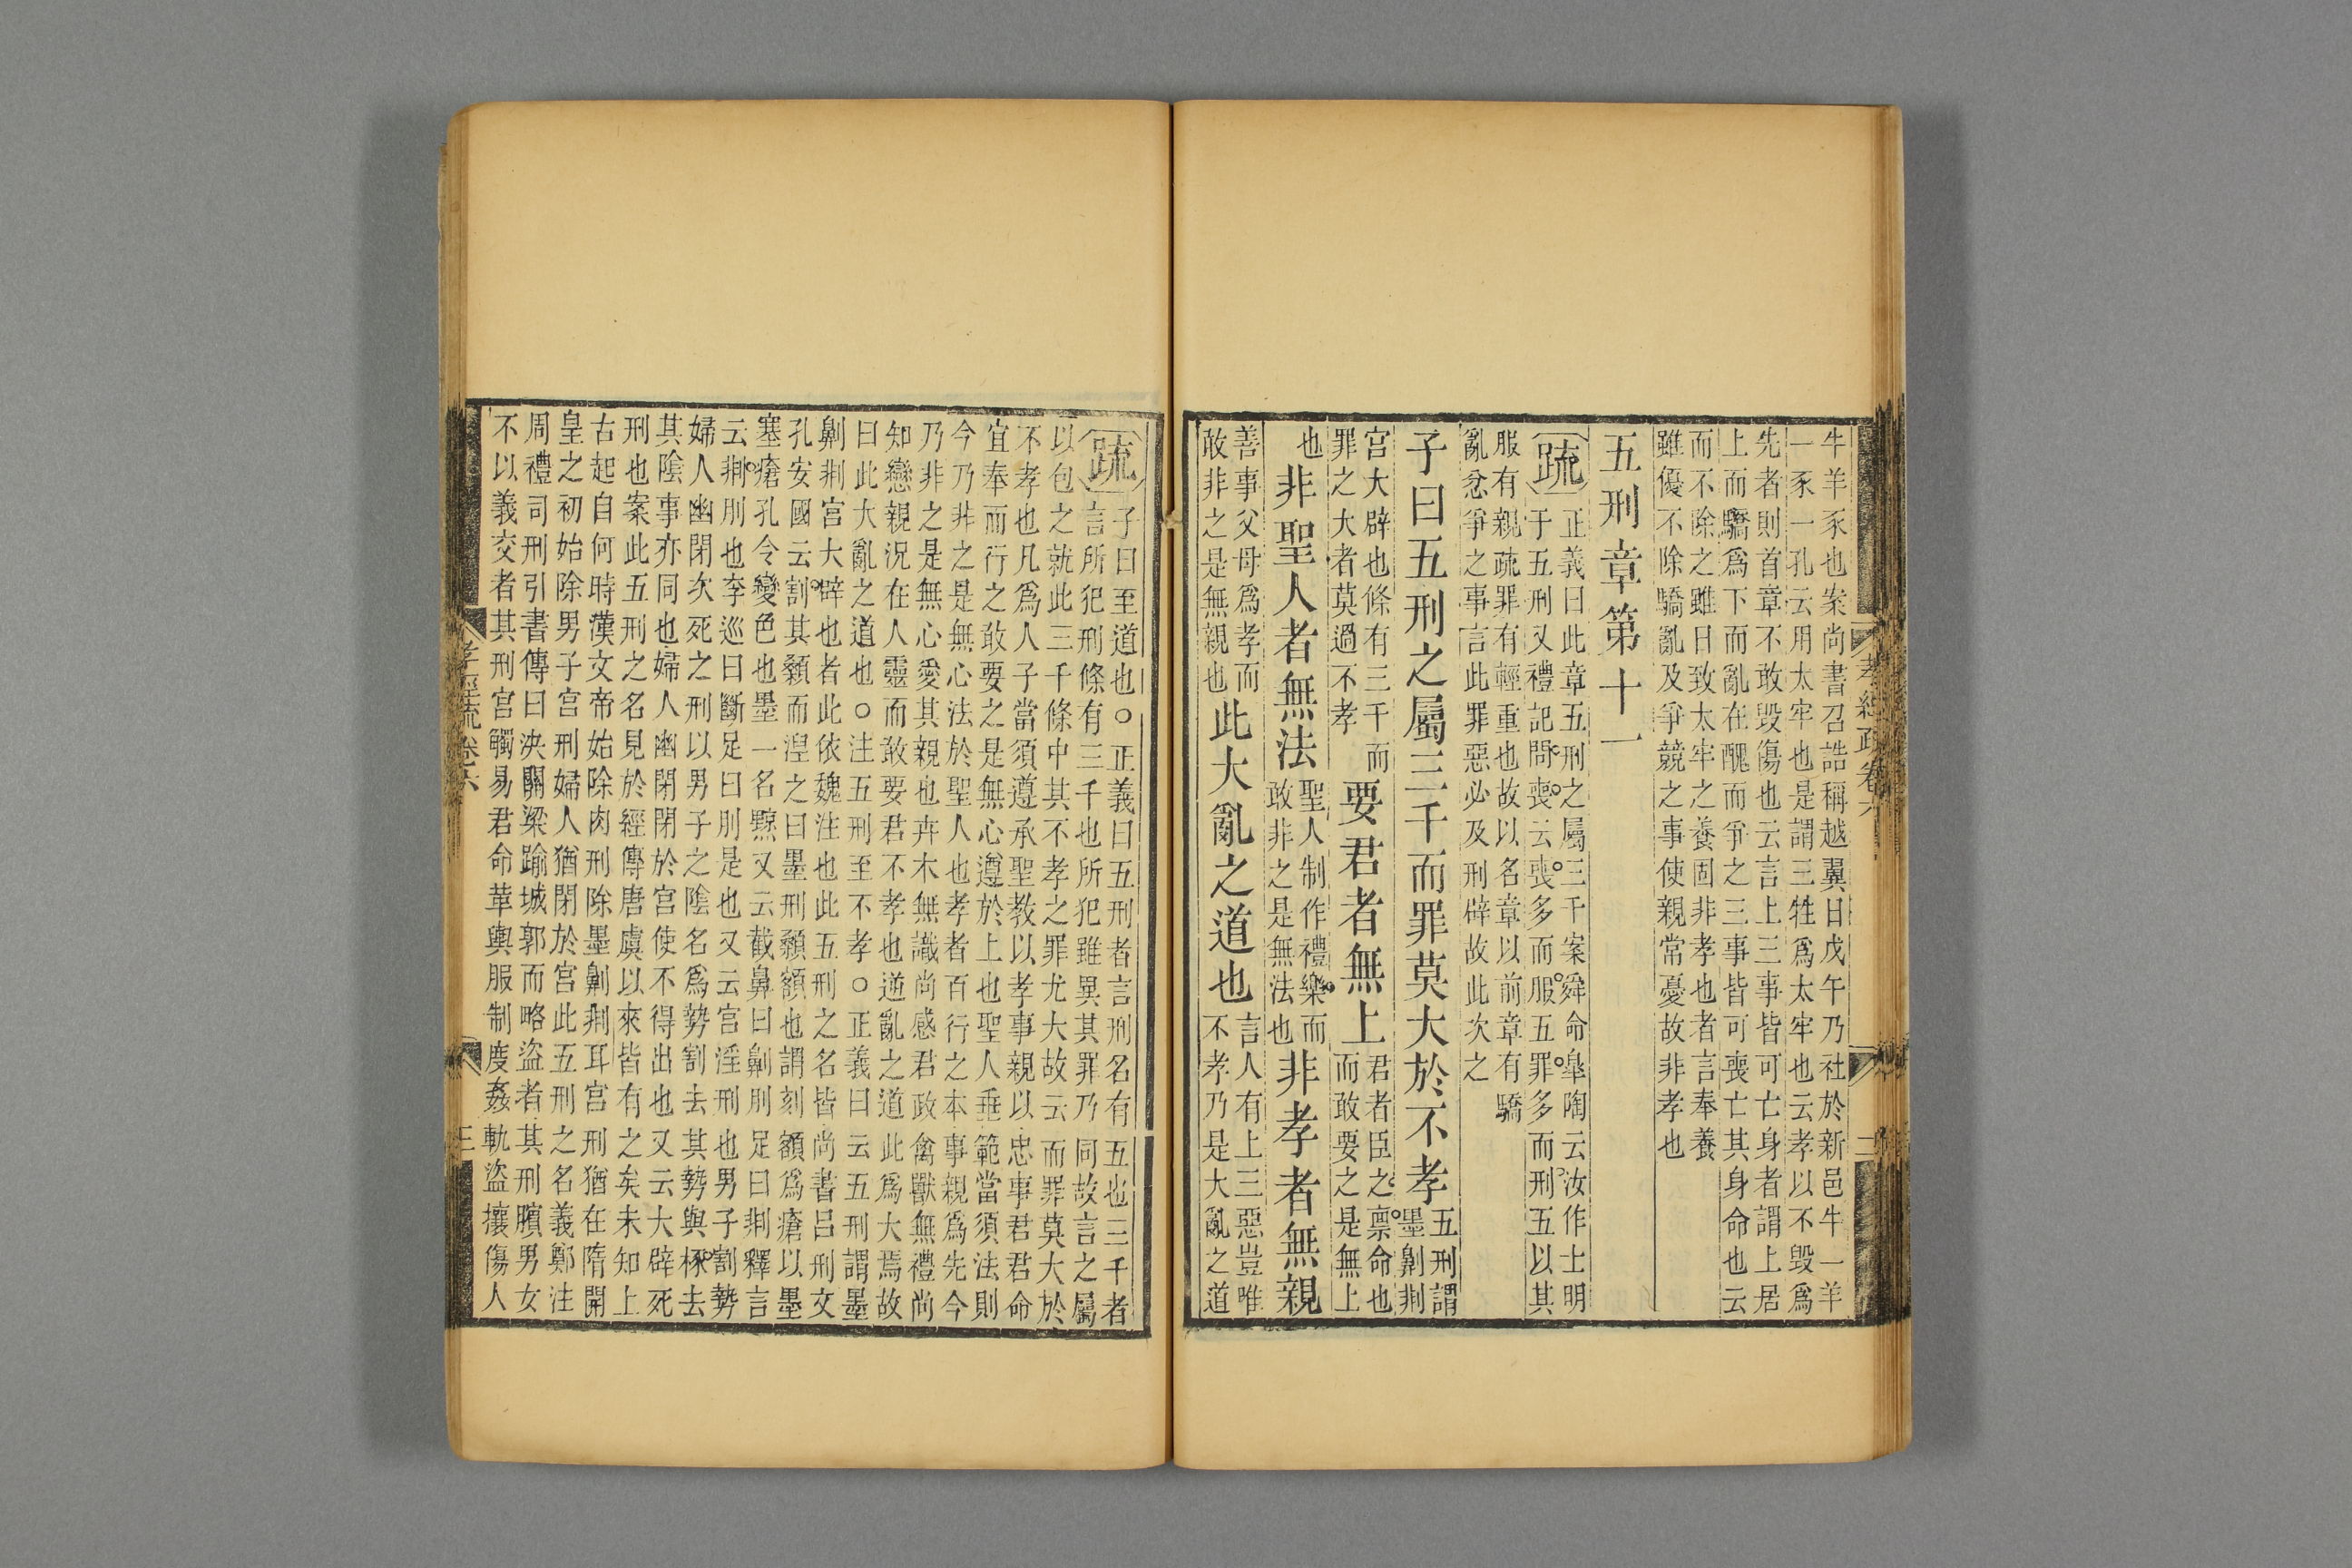 牛羊豕也案尚書召誥稱越翼日戊午乃社於新邑牛一羊
一豕一孔云用太牢也是謂三牲爲太牢也云孝以不毀爲
先者則首章不敢毀傷也云言上三事皆可亡身者謂上居
上而驕爲下而亂在醜而爭之三事皆可喪亡其身命也云
而不除之雖日致太牢之養固非孝也者言奉養
雖優不除驕亂及爭競之事使親常憂故非孝也
五刑章第十一
疏
正義曰此章五刑之屬三千案舜命皐陶云汝作士明
于五刑又禮記問喪云喪多而服五罪多而刑五以其
服有親疏罪有輕重也故以名章以前章有驕
亂忿爭之事言此罪惡必及刑辟故此次之
子曰五刑之屬三千而罪莫大於不孝
五刑謂
墨劓剕
宮大辟也條有三千而
罪之大者莫過不孝
要君者無上
君者臣之禀命也
而敢要之是無上
也
非聖人者無法
聖人制作禮樂而
敢非之是無法也
非孝者無親
善事父母爲孝而
敢非之是無親也
此大亂之道也
言人有上三惡豈唯
不孝乃是大亂之道
孝經疏卷六
二
疏
子曰至道也○正義曰五刑者言刑名有五也三千者
言所犯刑條有三千也所犯雖異其罪乃同故言之屬
以包之就此三千條中其不孝之罪尤大故云而罪莫大於
不孝也凡爲人子當須遵承聖教以孝事親以忠事君君命
宜奉而行之敢要之是無心遵於上也聖人垂範當須法則
今乃非之是無心法於聖人也孝者百行之本事親爲先今
乃非之是無心愛其親也卉木無識尚感君政禽獸無禮尚
知戀親況在人靈而敢要君不孝也逆亂之道此爲大焉故
曰此大亂之道也○注五刑至不孝○正義曰云五刑謂墨
劓剕宮大辟也者此依魏注也此五刑之名皆尚書呂刑文
孔安國云割其顙而涅之曰墨刑顙額也謂刻額爲瘡以墨
塞瘡孔令變色也墨一名黥又云截鼻曰劓刖足曰剕釋言
云剕刖也李巡曰斷足曰刖是也又云宮淫刑也男子割勢
婦人幽閉次死之刑以男子之陰名爲勢割去其勢與椓去
其陰事亦同也婦人幽閉閉於宮使不得出也又云大辟死
刑也案此五刑之名見於經傳唐虞以來皆有之矣未知上
古起自何時漢文帝始除肉刑除墨劓剕耳宮刑猶在隋開
皇之初始除男子宮刑婦人猶閉於宮此五刑之名義鄭注
周禮司刑引書傳曰決關梁踰城郭而略盜者其刑臏男女
不以義交者其刑宮觸易君命革輿服制度姦軌盜攘傷人
孝經疏卷六
三